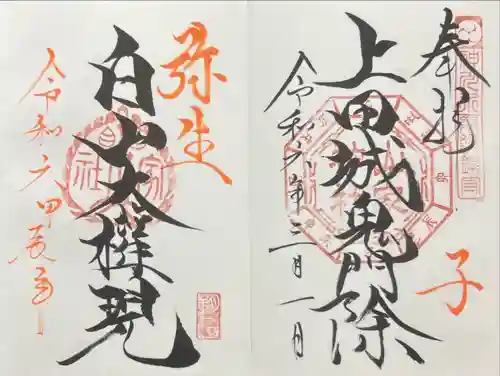 奉拝
上田城鬼門除
子
令和六年三月一日
弥生
白山大権現
令和六甲辰年